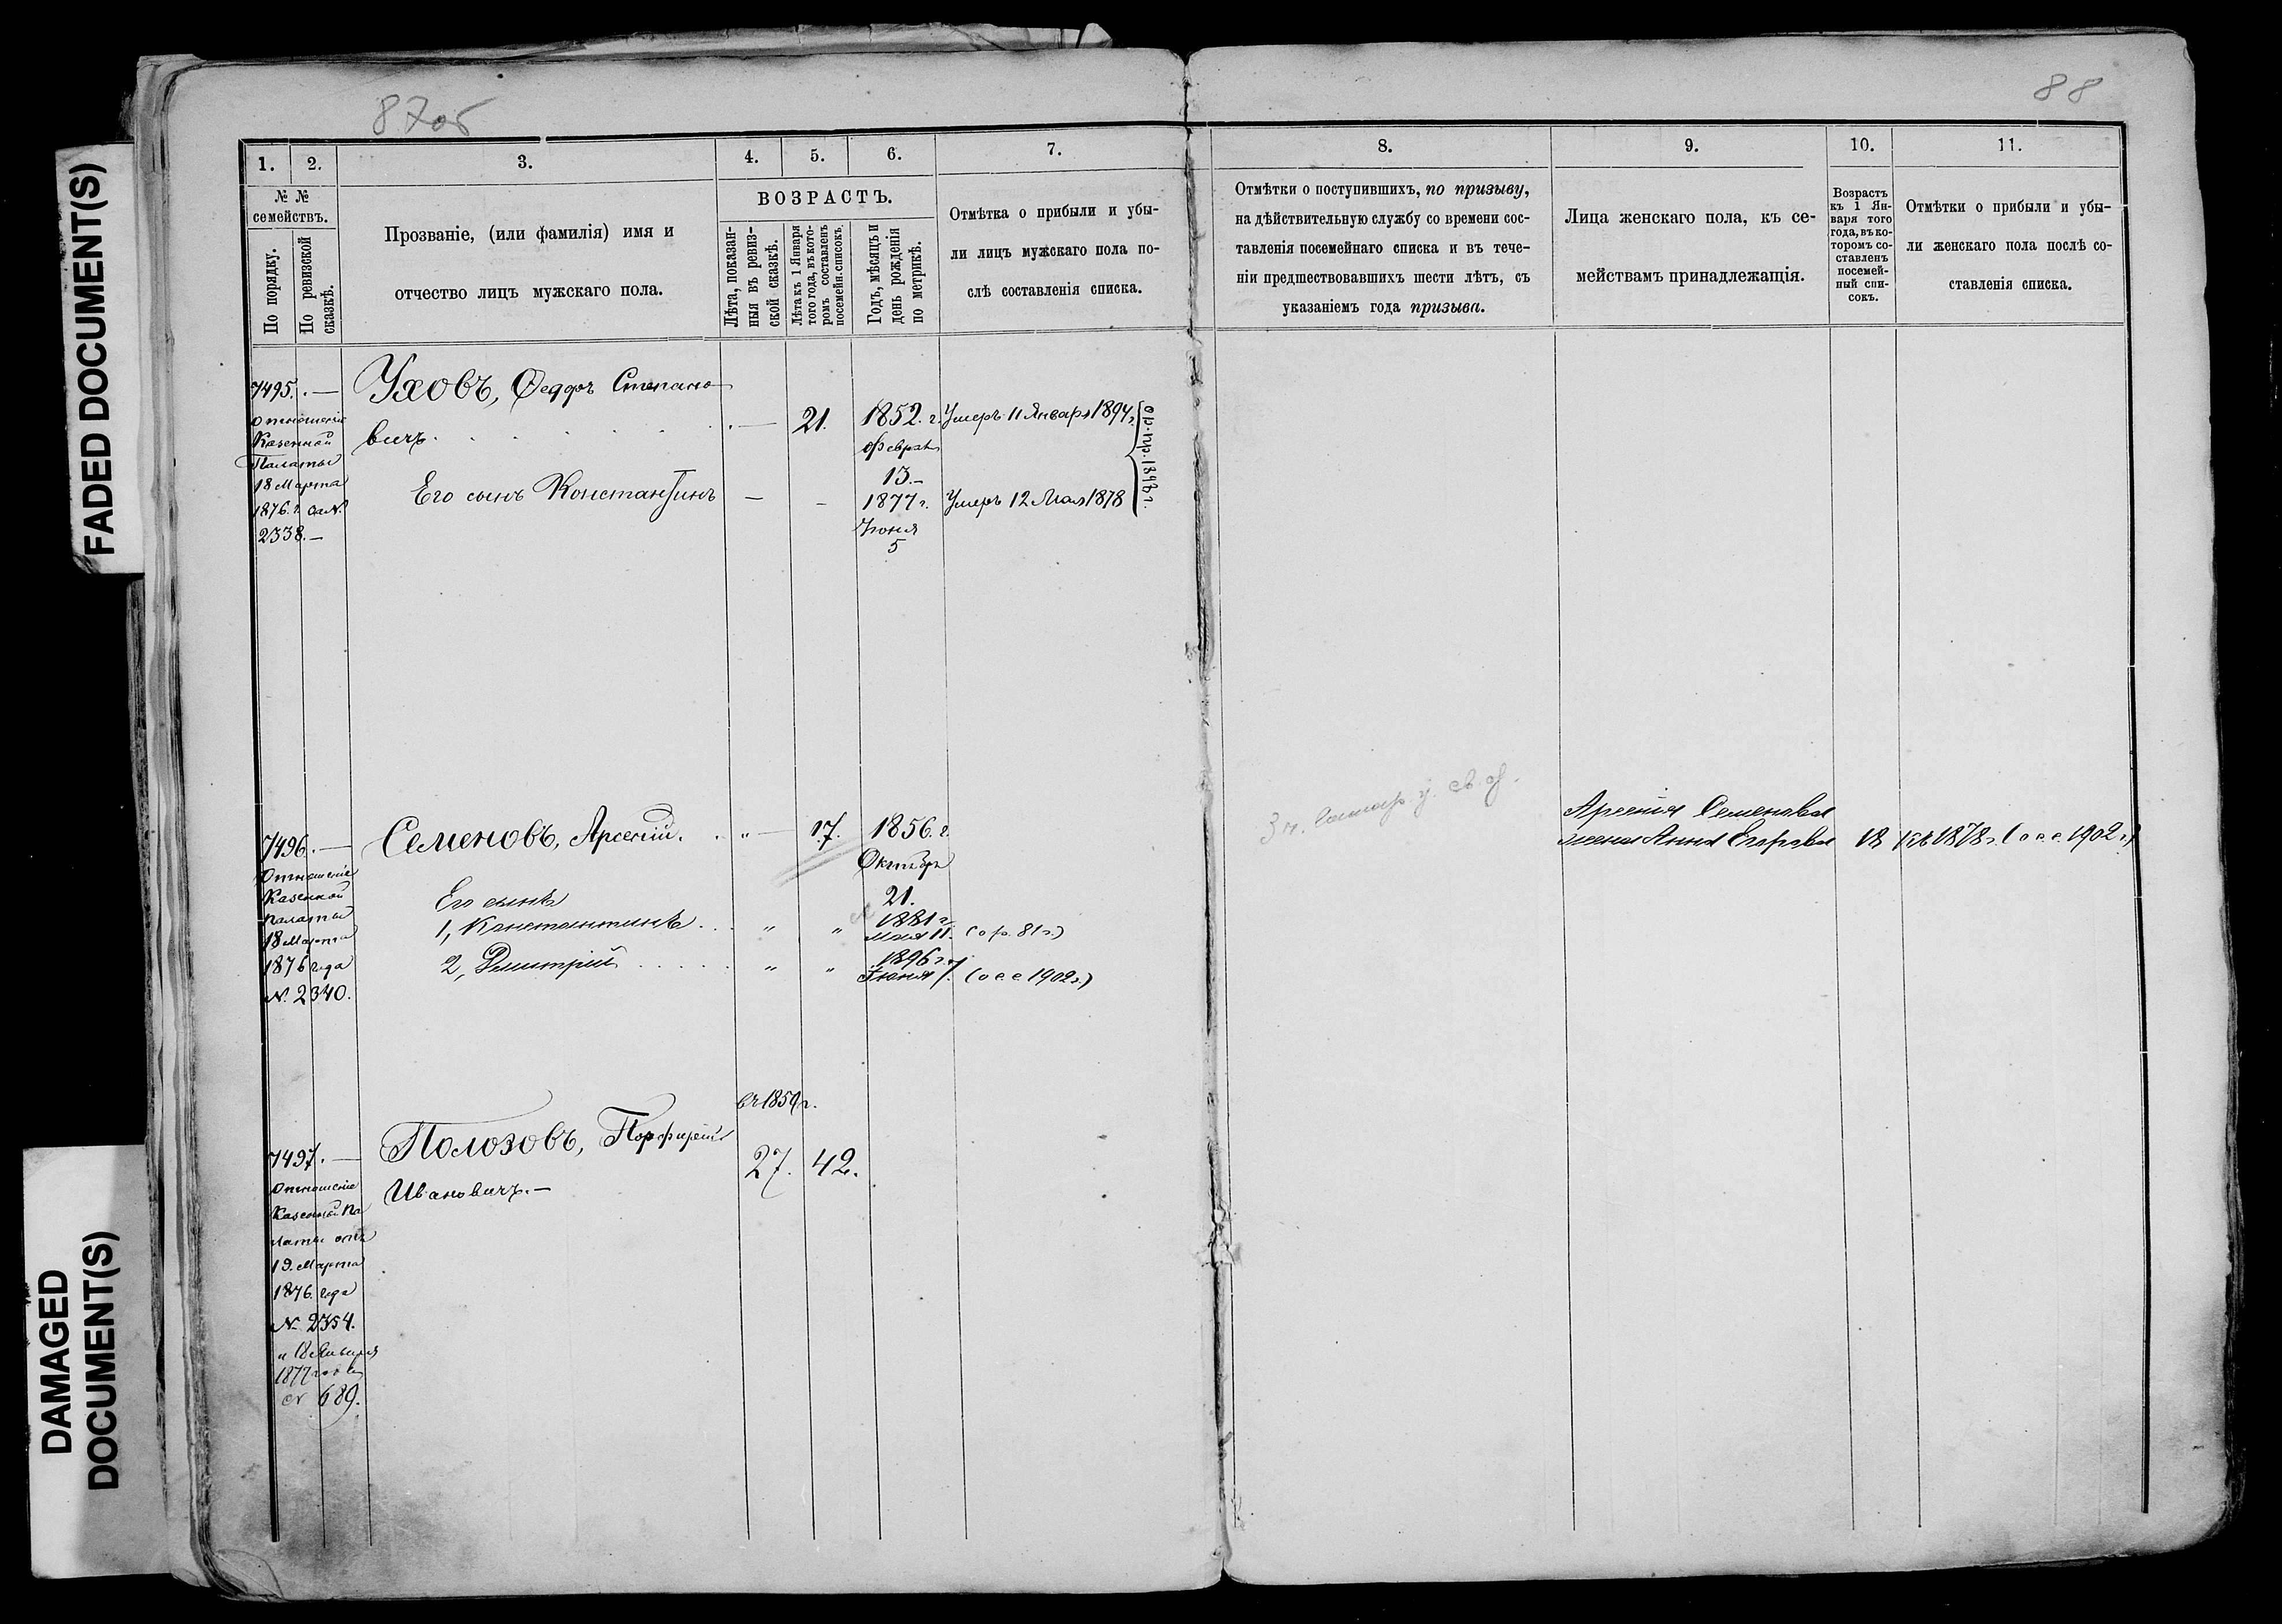 FADED DOCUMENT(S)
DAMAGED
DOCUMENT(S)
87об
88
1.
2.
3.
4.
5.
6.
7.
8.
9.
10.
11.
№ №
семействъ.
По порядку.
По ревизской
сказкѣ.
Прозваніе, (или фамилія) имя и
отчество лицъ мужскаго пола.
ВОЗРАСТЪ.
Лѣта, показан-
ныя въ ревиз-
ской сказкѣ.
Лѣта къ 1 Января
того года, въ кото-
ромъ составленъ
посемейн. списокъ.
Годъ, мѣсяцъ и
день рожденія
по метрикѣ.
Отмѣтка о прибыли и убы-
ли лицъ мужскаго пола по-
слѣ составленія списка.
Отмѣтки о поступившихъ, по призыву,
на дѣйствительную службу со времени сос-
тавленія посемейнаго списка и въ тече-
ніи предшествовавшихъ шести лѣтъ, съ
указаніемъ года призыва.
Лица женскаго пола, къ се-
мействамъ принадлежащія.
Возрастъ
къ 1 Ян-
варя того
года, въ ко-
торомъ со-
ставленъ
посемей-
ный спи-
сокъ.
Отмѣтки о прибыли и убы-
ли женскаго пола послѣ со-
ставленія списка.
7495. —
Отношеніе
Казенной
Палаты
18 Марта
1876 г. за №
2338. —
Уховъ, Ѳедоръ Степано-
вичъ.
— 21. 1852. г.
Феврал
13. —
Умеръ 11 Января 1894 г.
Его сынъ Константинъ
— - 1877 г.
Іюня
5
Умеръ 12 Мая 1878
7496. —
Отношеніе
Казенной
палаты
18 Марта
1876 года
№ 2340.
Семеновъ, Арсеній.
„ — 17. 1856. г.
Октябр
21.
Его сынъ
1, Константинъ
„ „ 1881 г.
мая 11. (о р. 81 г.)
2, Дмитрій
„ „ 1896 г.
Іюня 7. (о с. с 1902 г.)
Арсенія Семенова
жена Анна Егорова 18 1878 г. (о с. с. 1902 г.)
7497. —
Отношеніе
Казенной Па
латы отъ
19. Марта
1876. года
№ 2354.
1877
№ 689.
Полозовъ, Порфирій
Ивановичъ. —
въ 1859 г.
27. 42.